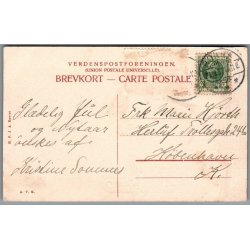 VERDENSPOSTFORENINGEN
(UNION POSTALE UNIVERSELLE)
BREVKORT — CARTE POSTALE
Glædelig Jul
og Nytaar
ønskes af
Kristine Sommer
Frk Marie Hjorth
Hertuf Trollesgade
København
K.